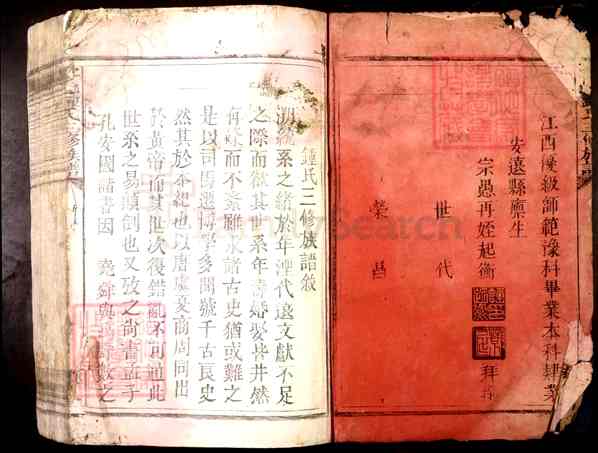 江西優級師範豫科畢業本科肄業
安遠縣廩生
宗愚再姪起衡
拜
世代
榮昌
鍾氏三修族譜敘
溯統系之緒於年湮代遠文獻不足
之際而欲其世系年壽婚娶皆井然
有條而不紊雖求諸古史猶或難之
是以司馬遷博學多聞號千古良史
然其於本紀也以唐虞夏商周同出
於黃帝而其世次後錯亂不可通此
世系之易顛倒也又攷之尚書孟子
孔安國諸書因堯舜典